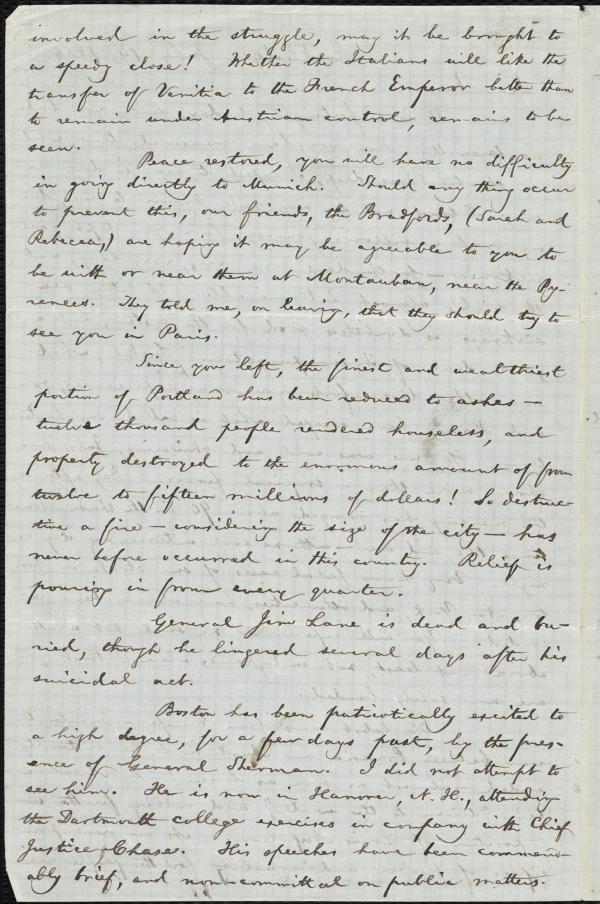 involved in the struggle, may it be brought to
a speedy close! Whether the Italians will like the
transfer of Venitia to the French Emperor better than
to remain under Austrian control, remains to be
seen.
Peace restored, you will have no difficulty
in going directly to Munich. Should any thing occur
to prevent this, our friends, the Bradfords, (Sarah and
Rebecca,) are hoping it may be agreeable to you to
be with or near them at Montauban, near the Py-
renees. They told me, on leaving, that they should try to
see you in Paris.
Since you left, the finest and wealthiest
portion of Portland has been reduced to ashes —
twelve thousand people rendered houseless, and
property destroyed to the enormous amount of from
twelve to fifteen millions of dollars! So destruc-
tive a fire — considering the size of the city — has
never before occurred in this country. Relief is
pouring in from every quarter.
General Jim Lane is dead and bu-
ried, though he lingered several days after his
suicidal act.
Boston has been patriotically excited to
a high degree, for a few days past, by the pres-
ence of General Sherman. I did not attempt to
see him. He is now in Hanover, N. H., attending
the Dartmouth college exercises in company with Chief
Justice Chase. His speeches have been commend-
ably brief, and non-committal on public matters.